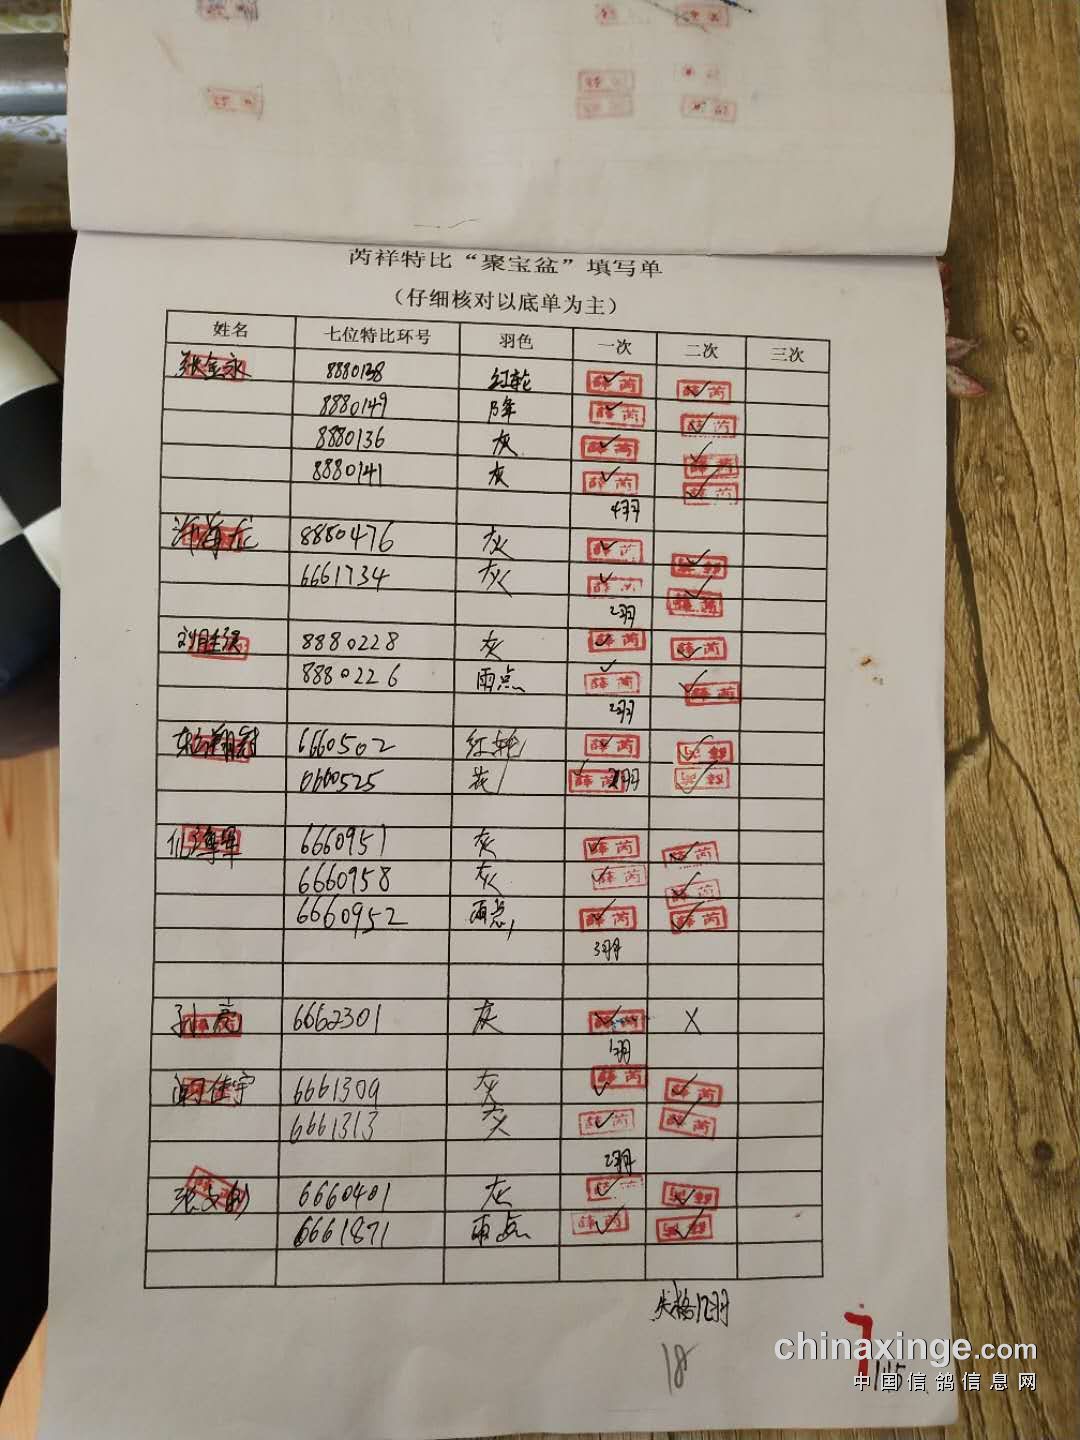 芮祥特比“聚宝盆”填写单
（仔细核对以底单为主）
姓名 七位特比环号 羽色 一次 二次 三次
张金永 8880138 红轮 薛芮 薛芮
8880149 降 薛芮 薛芮
8880136 灰 薛芮 薛芮
8880141 灰 薛芮 薛芮
4羽
8880476 灰 薛芮
6661734 灰 薛芮
2羽
刘胜强 8880228 灰 薛芮 薛芮
8880226 雨点 薛芮 薛芮
2羽
6660502 红轮 薛芮
0660525 花 薛芮 2羽
6660951 灰 薛芮 薛芮
6660958 灰 薛芮 薛芮
6660952 雨点 薛芮 薛芮
3羽
孙亮 6662301 灰 X
1羽
闻佳宇 6661309 灰 薛芮 薛芮
6661313 灰 薛芮 薛芮
2羽
6660401 灰 薛芮
6661871 雨点 薛芮
失格1羽
18
7
115
chinaxinge.com
中国信鸽信息网